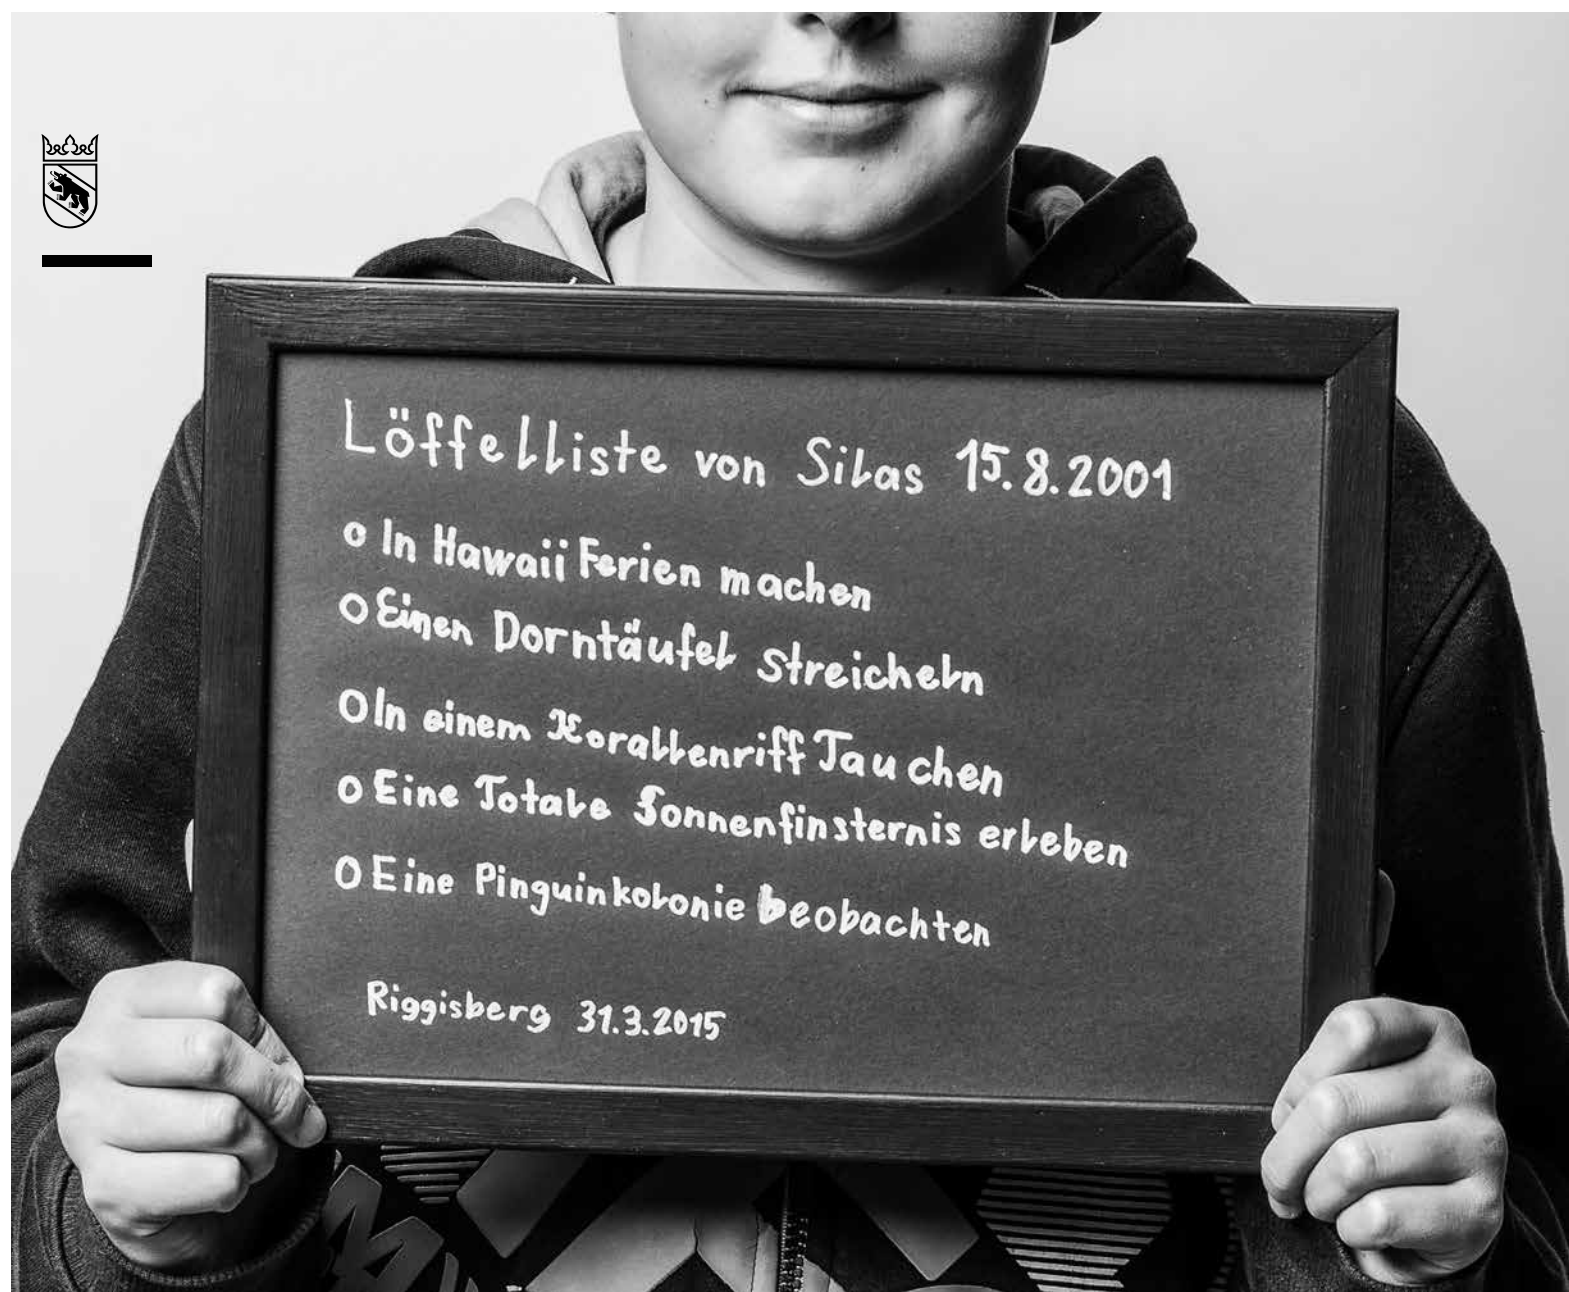 Löffelliste von Silas 15.8.2001
o In Hawaii Ferien machen
o Einen Dorntäufel streicheln
o In einem Korallenriff Tauchen
o Eine Totale Sonnenfinsternis erleben
o Eine Pinguinkolonie beobachten
Riggisberg 31.3.2015